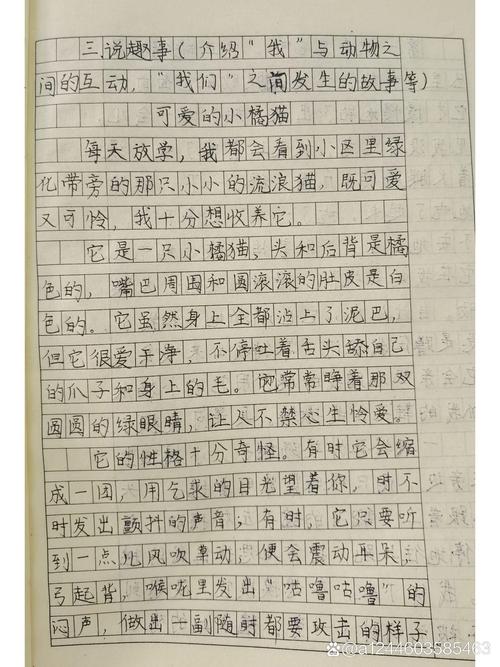 三.说趣事(介绍"我"与动物之
间的互动,"我们"之间发生的故事等)
可爱的小橘猫
每天放学,我都会看到小区里绿
化带旁的那只小小的流浪猫,既可爱
又可怜,我十分想收养它。
它是一只小橘猫,头和后背是橘
色的,嘴巴周围和圆滚滚的肚皮是白
色的。它虽然身上全都沾上了泥巴,
但它很爱干净,不停吐着舌头舔自己
的爪子和身上的毛。它常常睁着那双
圆圆的绿眼睛,让人不禁心生怜爱。
它的性格十分奇怪。有时它会缩
成一团,用乞求的目光望着你,时不
时发出颤抖的声音,有时,它只要听
到一点儿风吹草动,便会震动耳朵,
弓起背,喉咙里发出"咕噜咕噜"的
闷声,做出一副随时都要攻击的样子
@a1244603585463